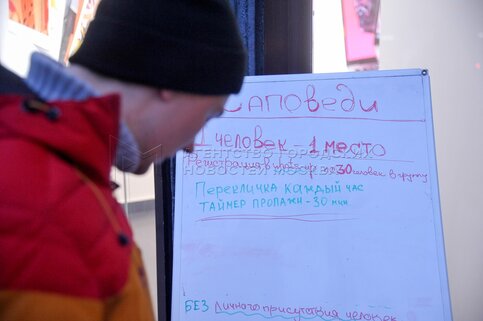 Заповеди
1 человек - 1 место
Регистрация в whats up по 30 человек в группу
Перекличка каждый час
ТАЙМЕР ПРОПАЖИ - 30 мин
АГЕНТСТВО ГОРОДСКИХ
НОВОСТЕЙ МОСКВА
БЕЗ Личного присутствия человек